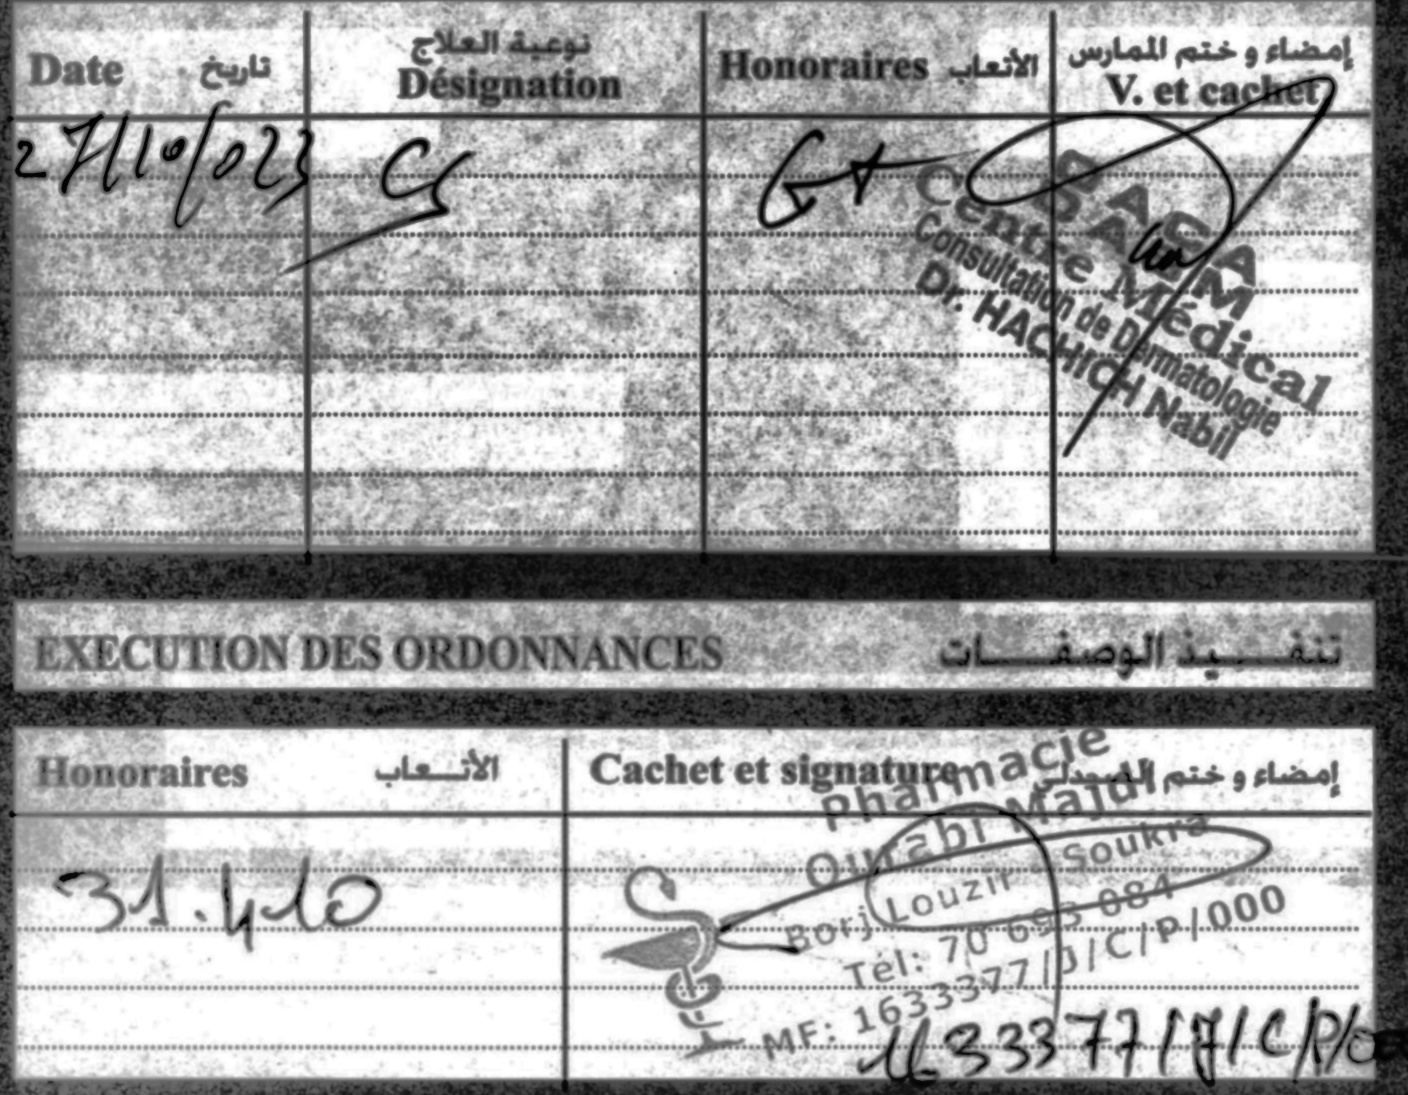 Date تاريخ نوعية العلاج Désignation Honoraires الأتعاب إمضاء و ختم الممارس V. et cachet
27/10/023 Cs
BACA
PALM
Centre Médical
Consultation de Dermatologie
Dr. HACHICH Nabil
EXECUTION DES ORDONNANCES تنفيذ الوصفات
Honoraires الأتعاب Cachet et signature إمضاء و ختم الصيدلي
31.410
Pharmacie
Ourabi Majdi
Borj Louzir - Soukra
Tél: 70 693 084
MF: 1633377/J/C/P/000
1633377/J/C/P/000